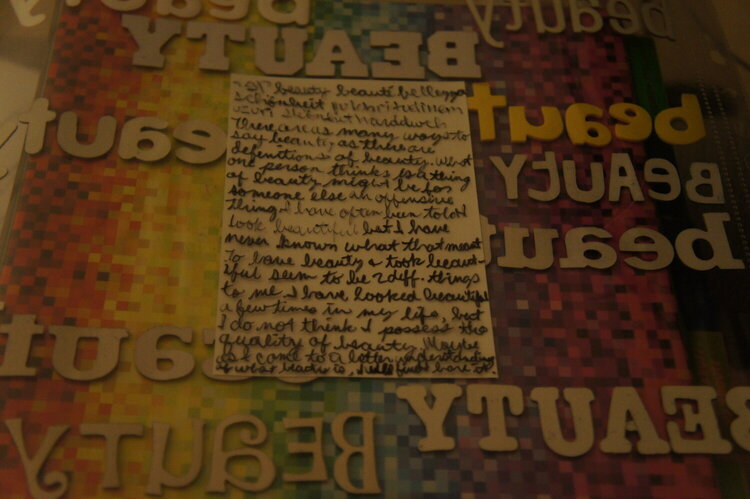 beauty
beauty
BEAUTY
beauty
beauty
BEAUTY
beauty
beauty
BEAUTY
BEAUTY
beauty beauté bellezza
schönheit pulchritudinem
There are as many ways to
say beauty as there are
definitions of beauty. What
one person thinks is a thing
of beauty might be for
someone else an offensive
thing. I have often been told I
look beautiful but I have
never known what that meant
To have beauty & look beauti-
ful seem to be 2 diff. things
to me. I have looked beautiful
a few times in my life, but
I do not think I possess the
quality of beauty. Maybe
as I come to a better understanding
of what beauty is, I will find